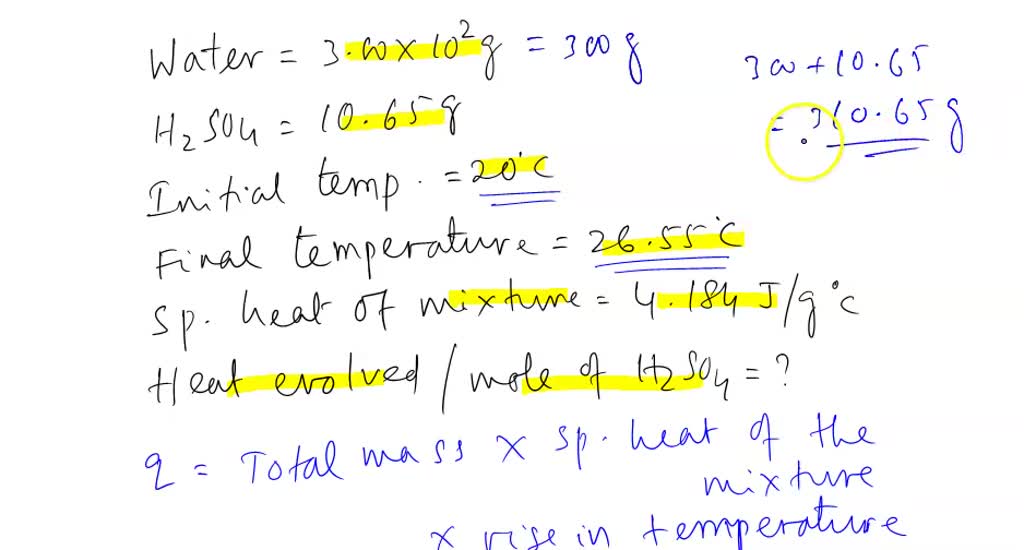 Water = 3.00 × 10² g = 300 g
300 + 10.65
= 310.65 g
H₂SO₄ = 10.65 g
Initial temp. = 20°C
Final temperature = 26.55°C
Sp. heat of mixture = 4.184 J/g°C
Heat evolved / mole of H₂SO₄ = ?
q = Total mass × sp. heat of the
mixture
× rise in temperature